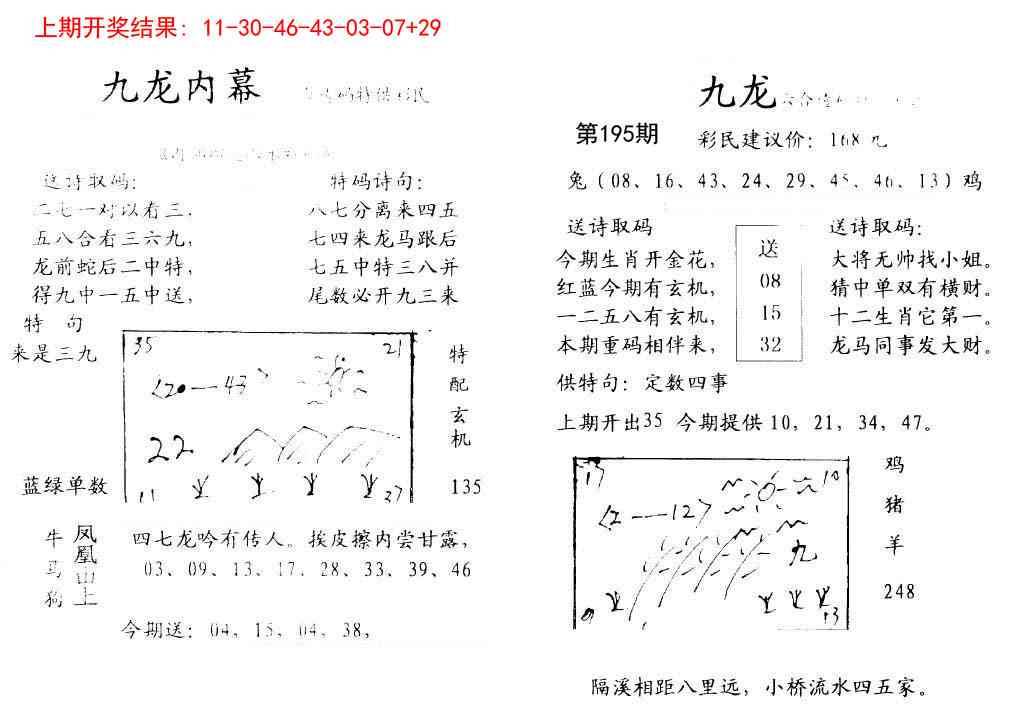 上期开奖结果：11-30-46-43-03-07+29
九龙内幕
送诗取码：
二七一对以看三，
五八合看三六九，
龙前蛇后二中特，
得九中一五中送，
特码诗句：
八七分离来四五
七四来龙马跟后
七五中特三八并
尾数必开九三来
特 句
来是三九
35 21
20—43
22
11 27
特
配
玄
机
135
蓝绿单数
牛
马
狗
凤
凰
山
上
四七龙吟有传人。挨皮擦内尝甘露，
03、09、13、17、28、33、39、46
今期送：04，15，04，38，
九龙
第195期
彩民建议价：168元
兔（08、16、43、24、29、45、46、13）鸡
送诗取码
今期生肖开金花，
红蓝今期有玄机，
一二五八有玄机，
本期重码相伴来，
送
08
15
32
送诗取码：
大将无帅找小姐。
猜中单双有横财。
十二生肖它第一。
龙马同事发大财。
供特句：定数四事
上期开出35 今期提供10，21，34，47。
17 10
〈2—12〉
九
13
鸡
猪
羊
248
隔溪相距八里远，小桥流水四五家。